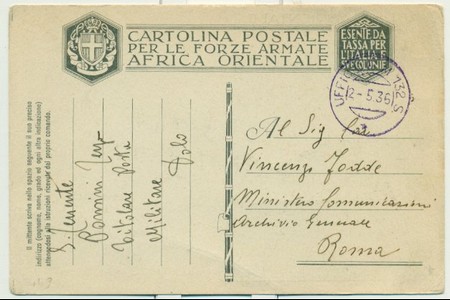 CARTOLINA POSTALE
PER LE FORZE ARMATE
AFRICA ORIENTALE
ESENTE DA
TASSA PER
L'ITALIA E
SUE COLONIE
2-5.36
132 S
Il mittente scriva nello spazio seguente il suo preciso
indirizzo (cognome, nome, grado ed ogni altra indicazione)
attenendosi alle istruzioni ricevute dal proprio comando.
S. Tenente
Titolare Posta
Militare Dolo
Al Sig
Vincenzo Fodde
Ministero Comunicazioni
Archivio Generale
Roma